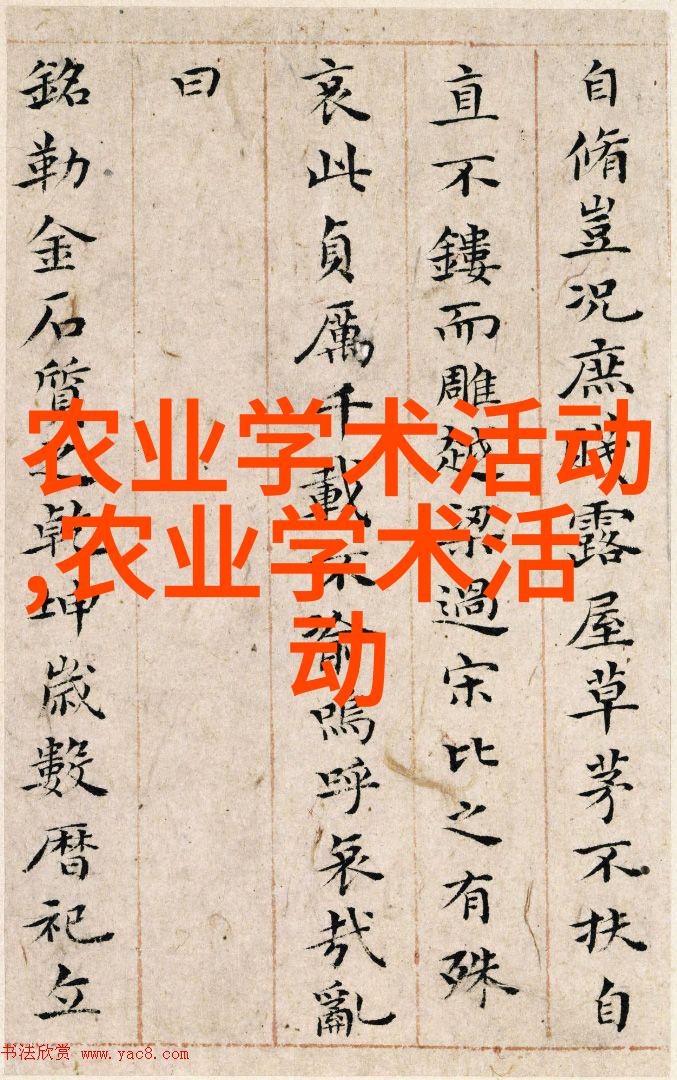 自脩豈況庶露屋草茅不扶自
直不鏤而雕越梁過宋比之有殊
哀此貞厲千載不渝嗚呼哀哉亂
曰
銘勒金石質之乾坤歲數曆祀立
农业学术活动
,农业学术活
动
书法欣赏 www.yac8.com